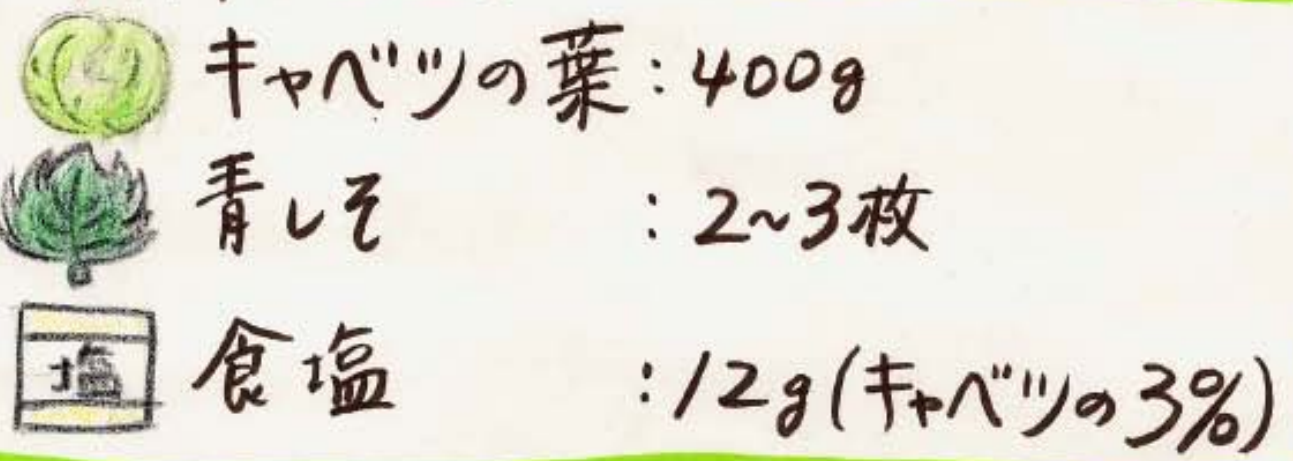 キャベツの葉:400g
青しそ:2~3枚
塩 食塩:12g(キャベツの3%)